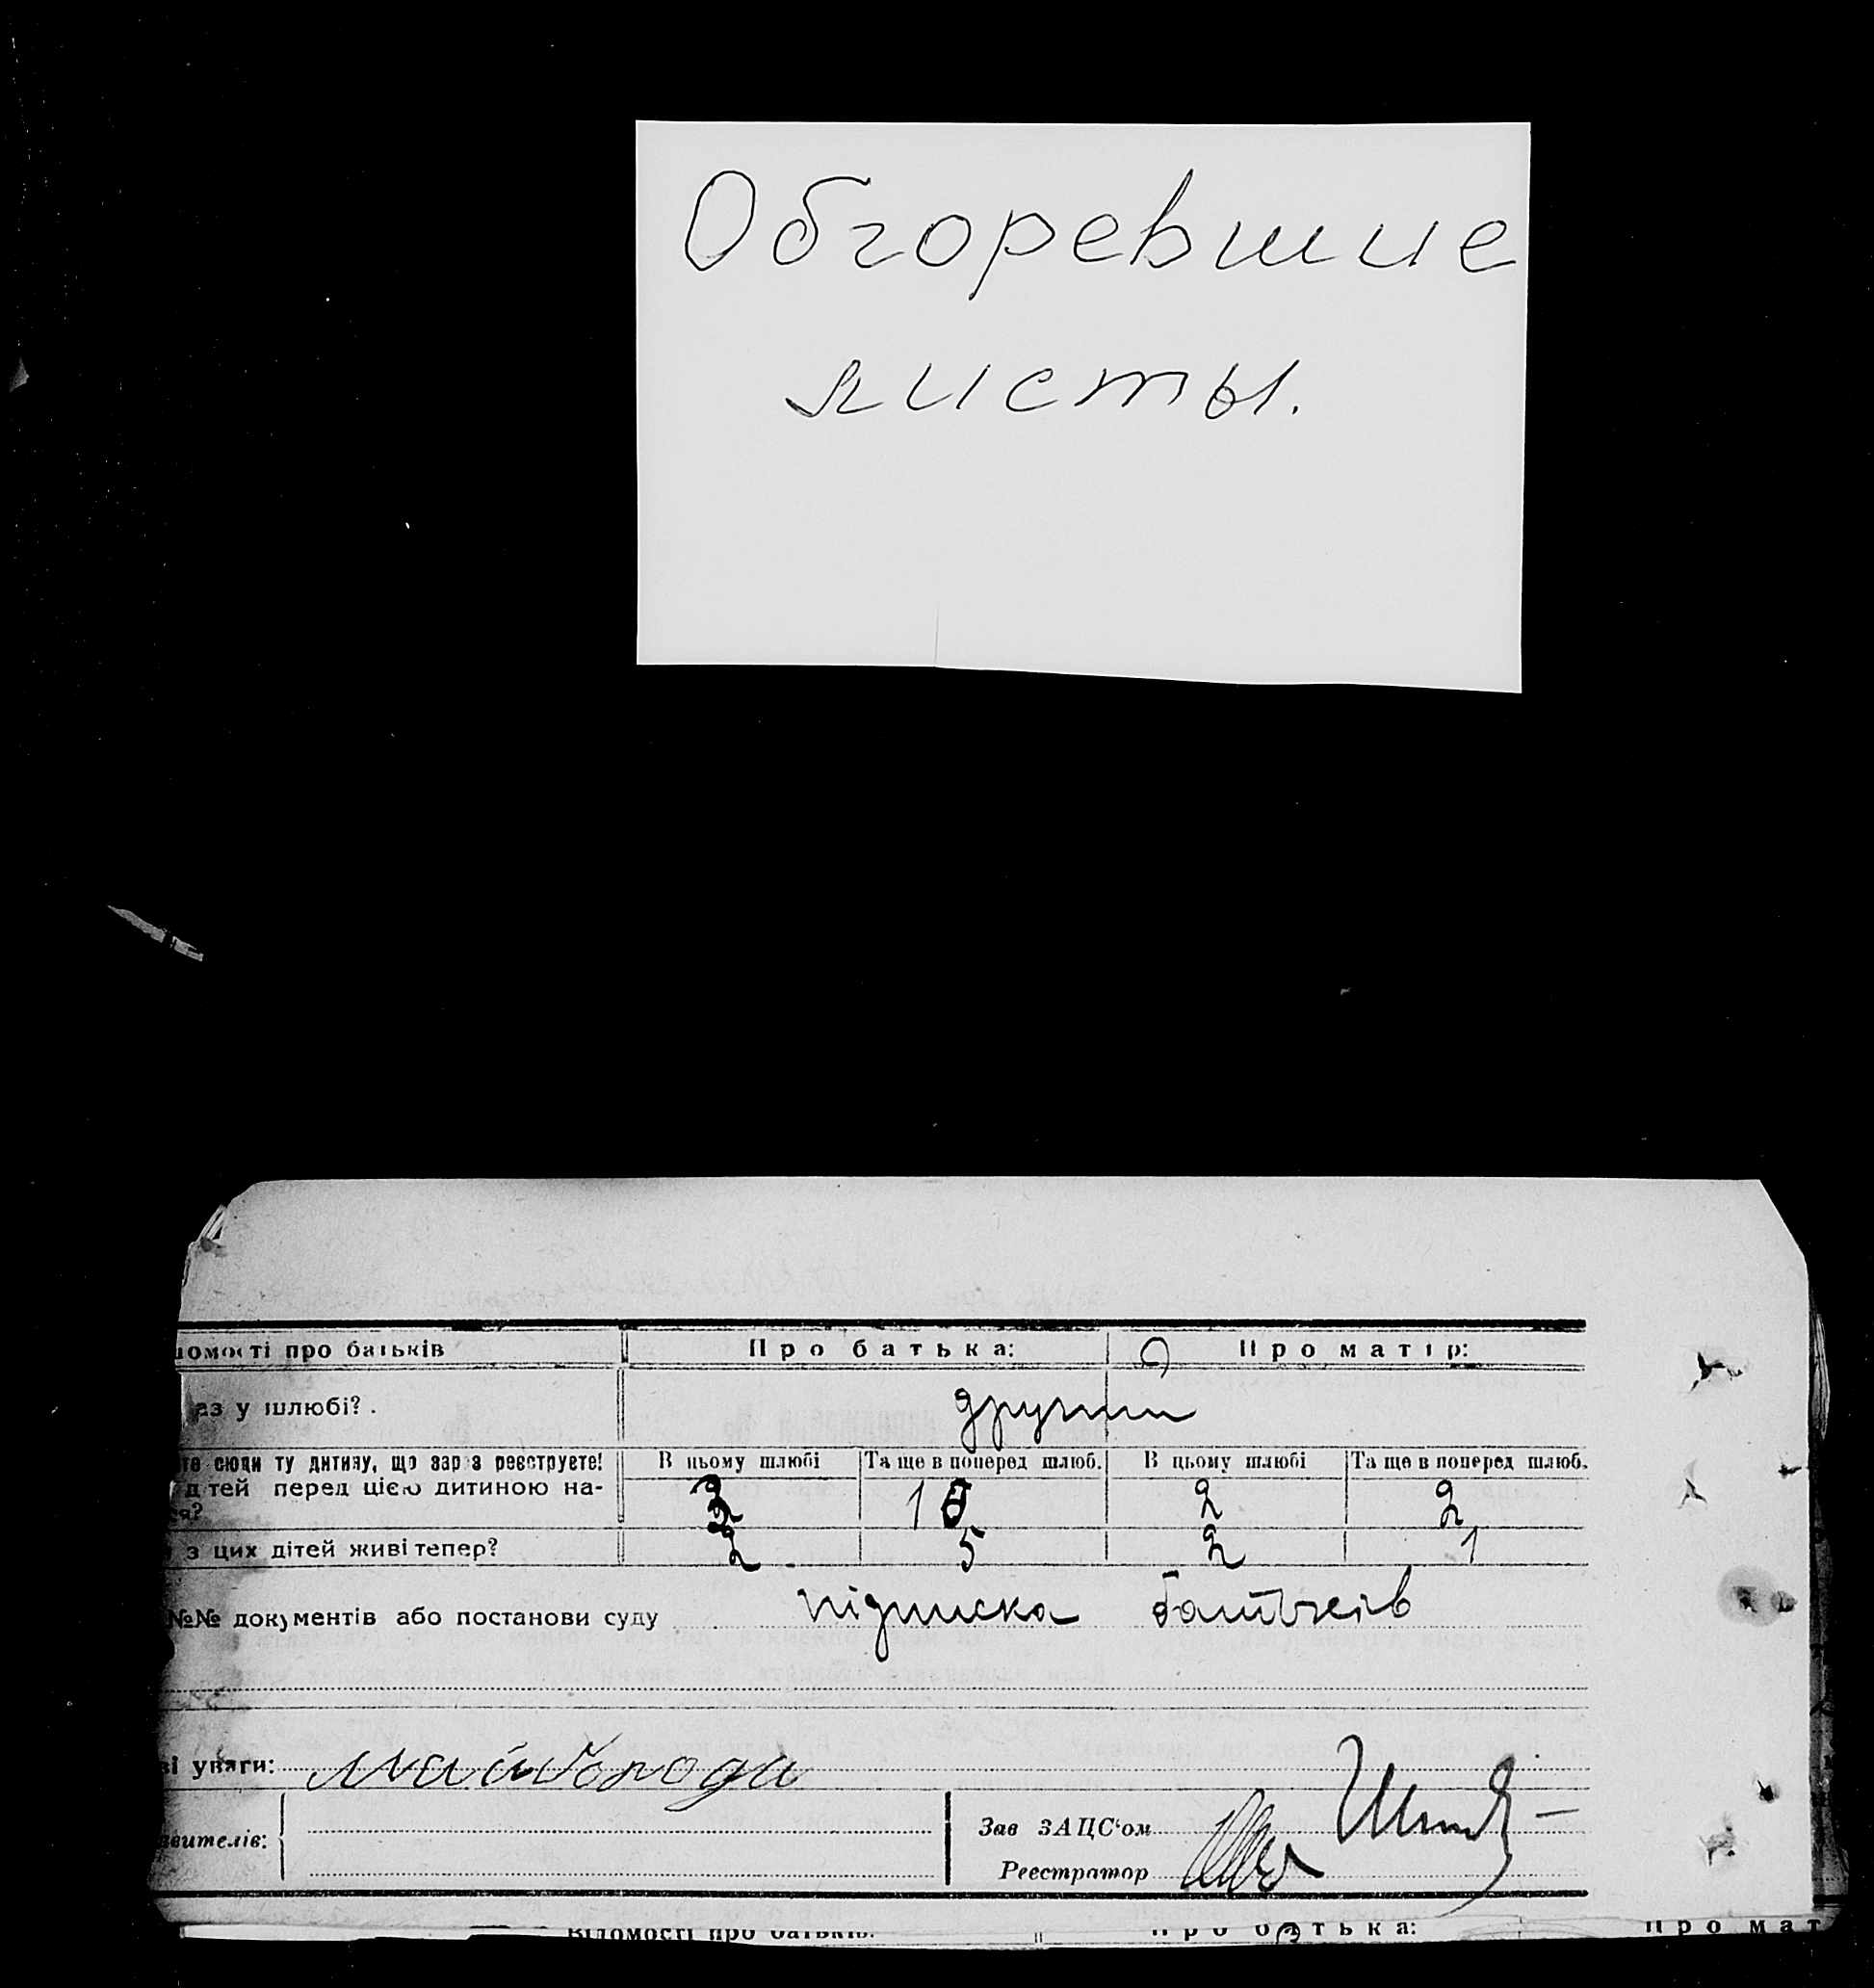 Обгоревшие
листы.
омості про батьків Про батька: Про матір:
аз у шлюбі? . другий
те сюди ту дитину, що зараз реєструєте! В цьому шлюбі Та ще в поперед шлюб. В цьому шлюбі Та ще в поперед шлюб.
дітей перед цією дитиною на- 2 2
ся?
з цих дітей живі тепер? 2 5 2 1
№№ документів або постанови суду підписка батьків
ві уваги: Майборода
вителів:
Зав ЗАЦС'ом
Реєстратор
Відомості про батьків: Про батька: Про мат